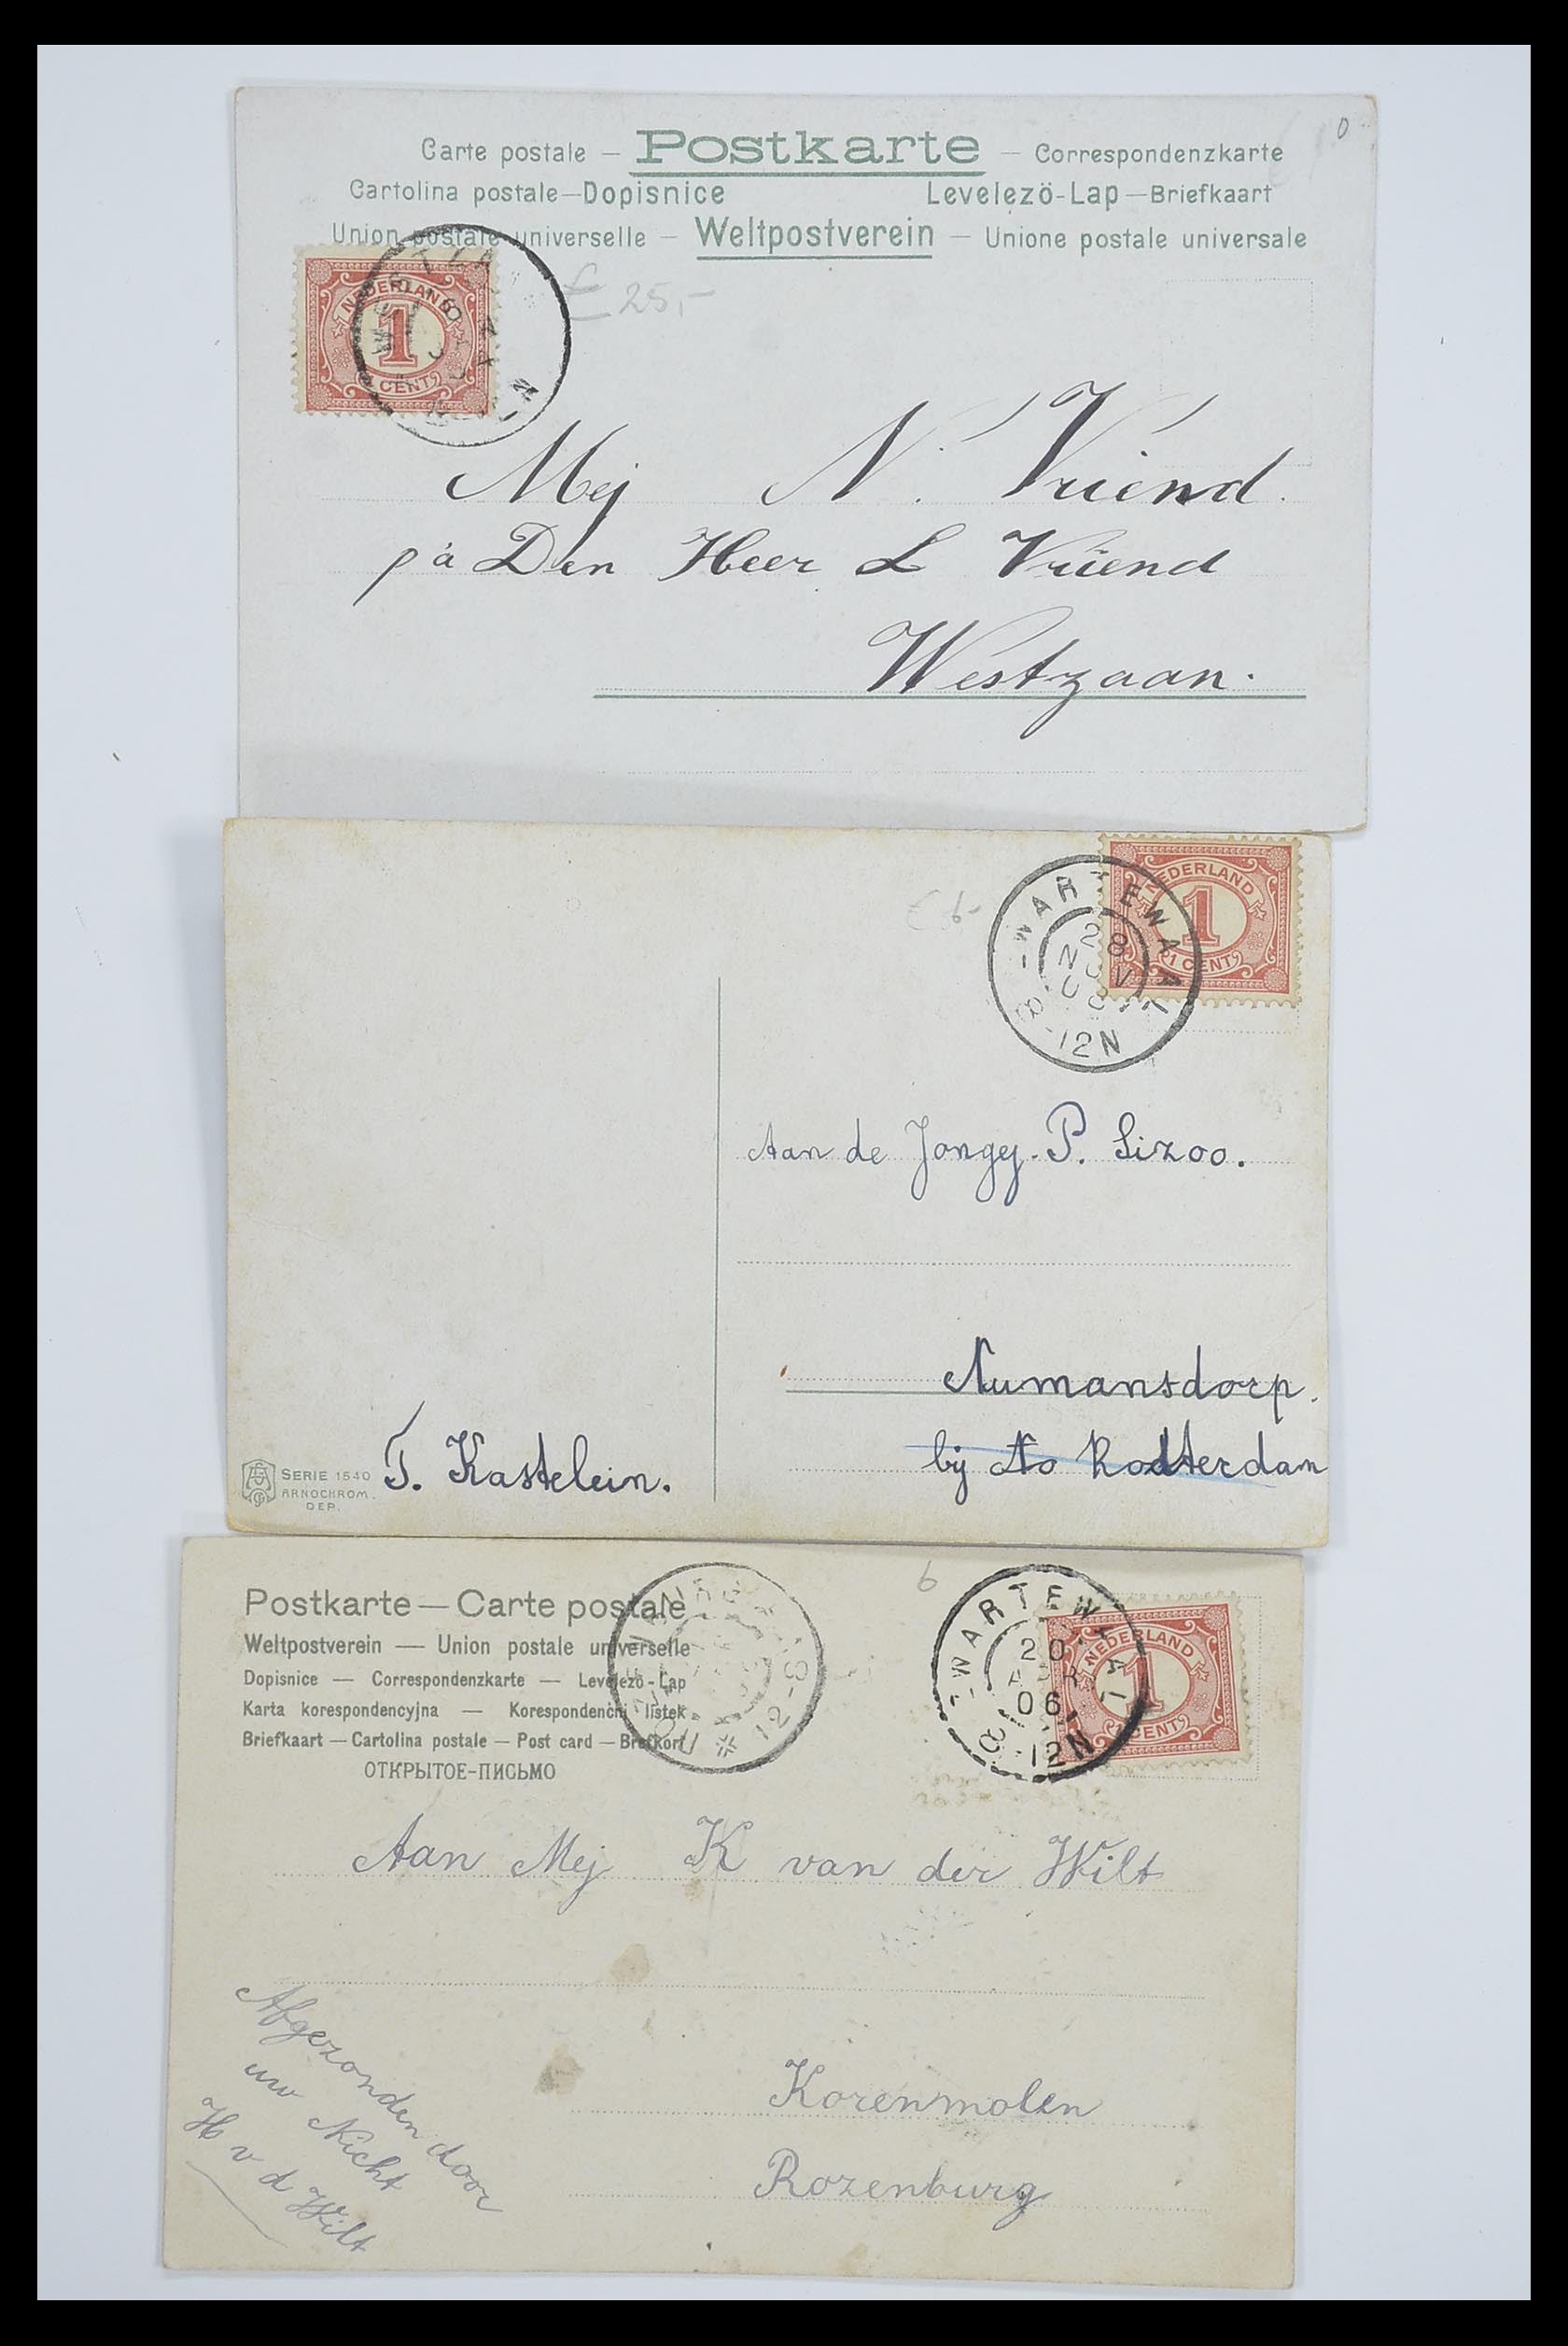 Carte postale — Postkarte — Correspondenzkarte
Cartolina postale—Dopisnice Levelezö-Lap—Briefkaart
Union postale universelle — Weltpostverein — Unione postale universale
NEDERLAND
1
CENT
25,-
Mej N. Vriend.
p/a Den Heer L Vriend
Westzaan.
NEDERLAND
1
1 CENT
WARTEWAART
28
NOV
8-12N
6-
Aan de Jongej. P. Sizoo.
Numansdorp.
bij Rotterdam
T. Kastelein.
SERIE 1540
ARNOCHROM.
DEP.
6
Postkarte — Carte postale
Weltpostverein — Union postale universelle
Dopisnice — Correspondenzkarte — Levelezö-Lap
Karta korespondencyjna — Korespondenčni listek
Briefkaart — Cartolina postale — Post card — Brefkort
ОТКРЫТОЕ-ПИСЬМО
12-8
NEDERLAND
1
1 CENT
20
APR
06
8-12N
Aan Mej K van der Wilt
Korenmolen
Rozenburg
Afgezonden door
uw Nicht
H v d Wilt